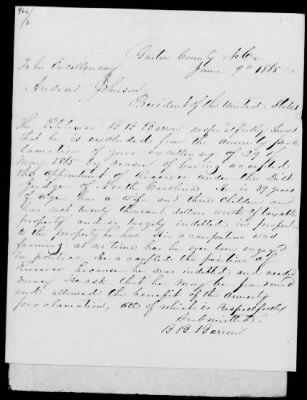 Gaston County N.C.
June 9th 1865
To his Excellency
Andrew Johnson
President of the United States
The Petitioner B B Baron respectfully shows
that he is excluded from the amnesty proc
lamation of your Excellency of 29 of
May 1865 by reason of having accepted
the appointment of Receiver under the dist
Judge of North Carolina. He is 39 years
of age, has a wife and three children and
has not twenty thousand dollars worth of taxable
property and is largely indebted in proport
to the property he has. His occupation was
farming at no time has he ever been engaged
in politics. He accepted the position of
Receiver because he was indebted and needed
money. He asks that he may be pardoned
and allowed the benefit of the Amnesty
proclamation, all of which is respectfully
Submitted
B B Baron